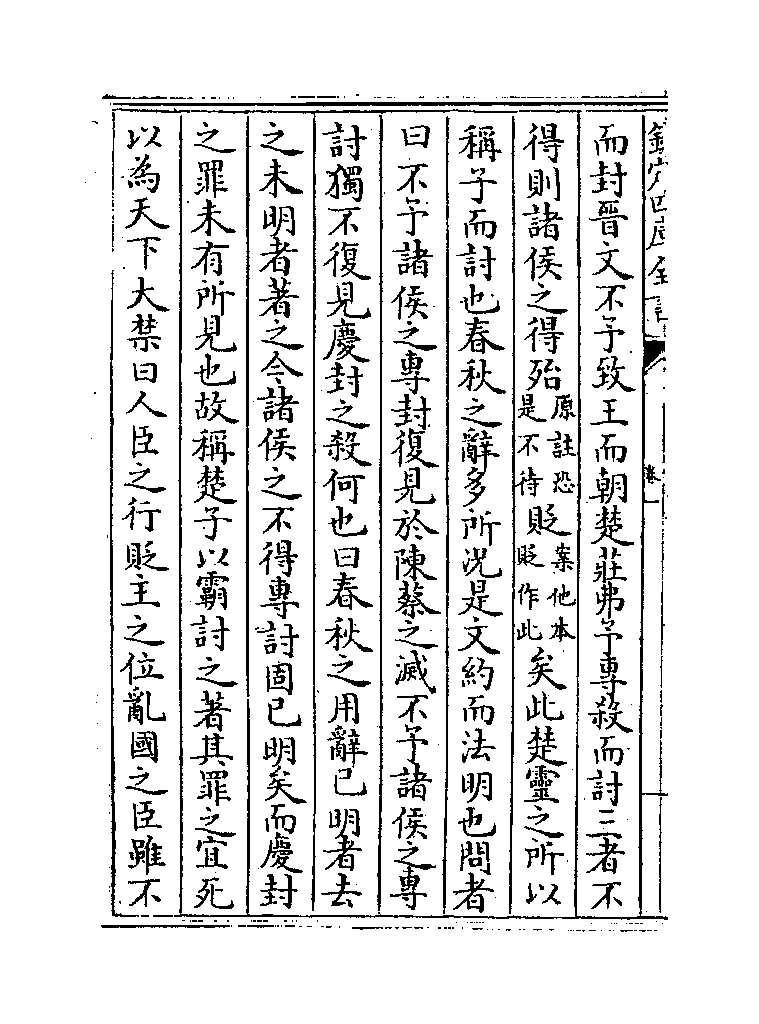 欽定四庫全書
卷一
而封晉文不予致王而朝楚莊弗予專殺而討三者不
得則諸侯之得殆原註恐是不待貶案他本貶作此矣此楚靈之所以
稱子而討也春秋之辭多所況是文約而法明也問者
曰不予諸侯之專封復見於陳蔡之滅不予諸侯之專
討獨不復見慶封之殺何也曰春秋之用辭已明者去
之未明者著之今諸侯之不得專討固已明矣而慶封
之罪未有所見也故稱楚子以霸討之著其罪之宜死
以為天下大禁曰人臣之行貶主之位亂國之臣雖不